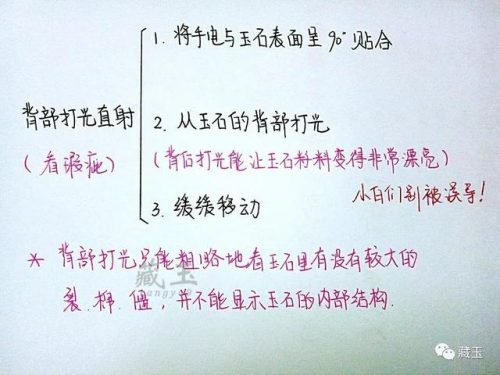 1. 将手电与玉石表面呈90°贴合
背部打光直射
2. 从玉石的背部打光
(看瑕疵)
(背后打光能让玉石粉料变得非常漂亮)
小白们别被误导!
3. 缓缓移动
* 背部打光只能粗略地看玉石里有没有较大的
裂.棉.僵,并不能显示玉石的内部结构.
藏玉
藏玉